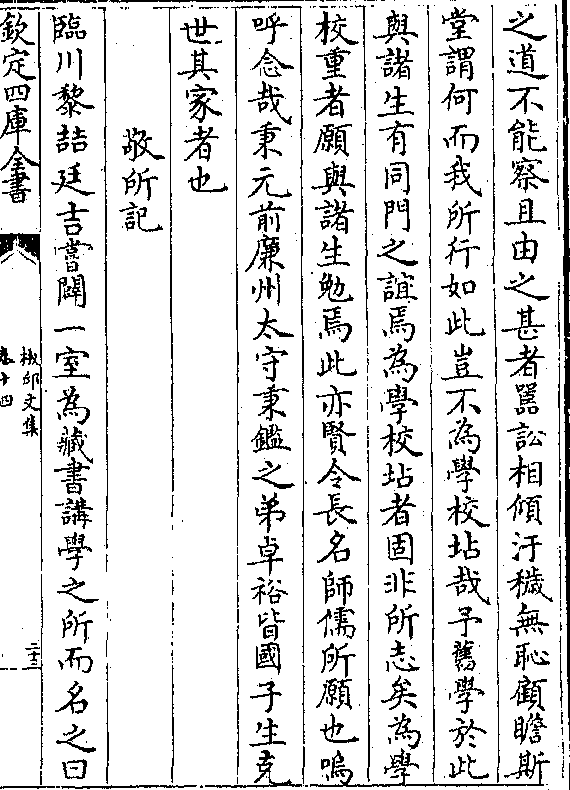 之道不能察且由之甚者嚚訟相傾汙穢無恥顧瞻斯
堂謂何而我所行如此豈不為學校玷哉予舊學於此
與諸生有同門之誼焉為學校玷者固非所志矣為學
校重者願與諸生勉焉此亦賢令長名師儒所願也嗚
呼念哉秉元前廉州太守秉鑑之弟卓裕皆國子生克
世其家者也
敬所記
臨川黎喆廷吉嘗闢一室為藏書講學之所而名之曰
欽定四庫全書
椒邱文集
卷十四
二十三